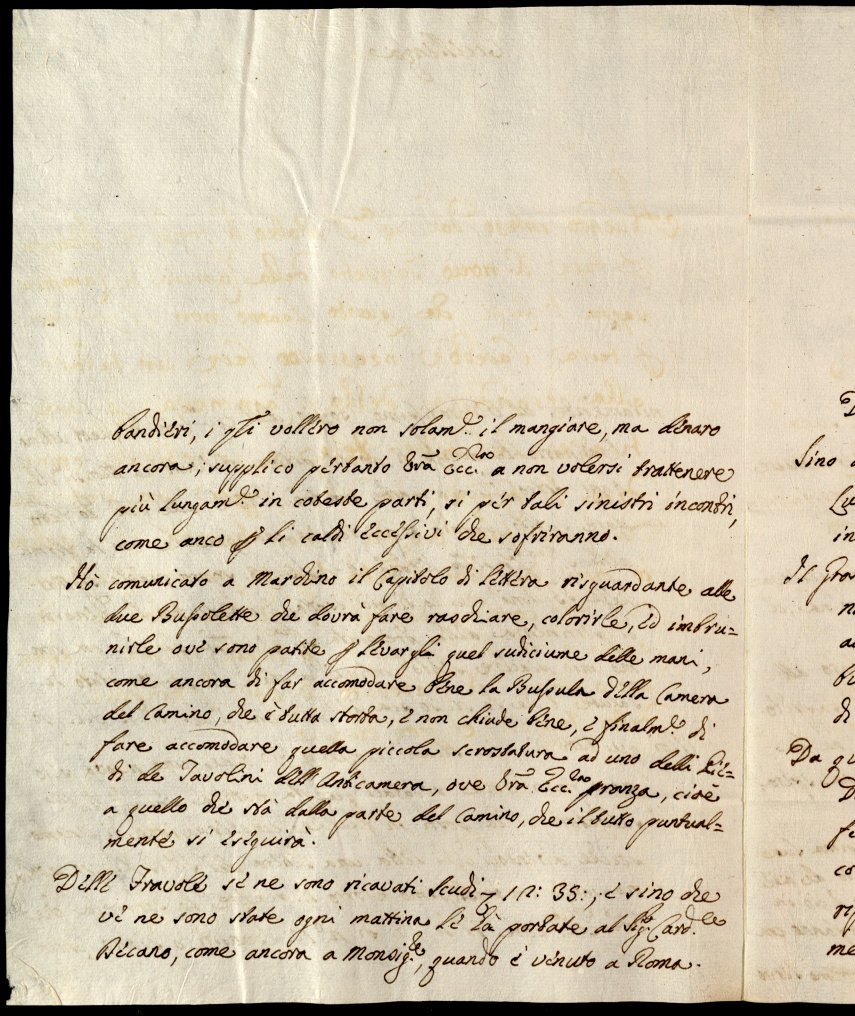 bandieri, i q.li vollero non solam.e il mangiare, ma denaro
ancora; supplico pertanto Vrã Ecc.za a non volersi trattenere
più lungam.e in coteste parti, si per tali sinistri incontri,
come anco p li caldi eccessivi che sofriranno.
Hò comunicato a Marchino il Capitolo di lettera risguardante alle
due Bussolette che dovrà fare raschiare, colorirle, ed imbru=
nirle ove sono patite p levargli quel sudiciume delle mani,
come ancora di far accomodare bene la Bussula della Camera
del Camino, che è tutta storta, e non chiude bene, e finalm.e di
fare accomodare quella piccola scrostatura ad uno delli Pie=
di de Tavolini dell'Anticamera, ove Vrã Ecc.za pranza, cioè
a quello che stà dalla parte del Camino, che il tutto puntual=
mente si eseguirà.
Delle Fravole se ne sono ricavati scudi 12: 35:, e sino che
ve ne sono state ogni mattina le hà portate al Sig. Card.le
Decano, come ancora a Monsig.re, quando è venuto a Roma.
D
Sino
Lu
in
Il
n
a
bu
di
Da qu
D
fe
co
rip
me